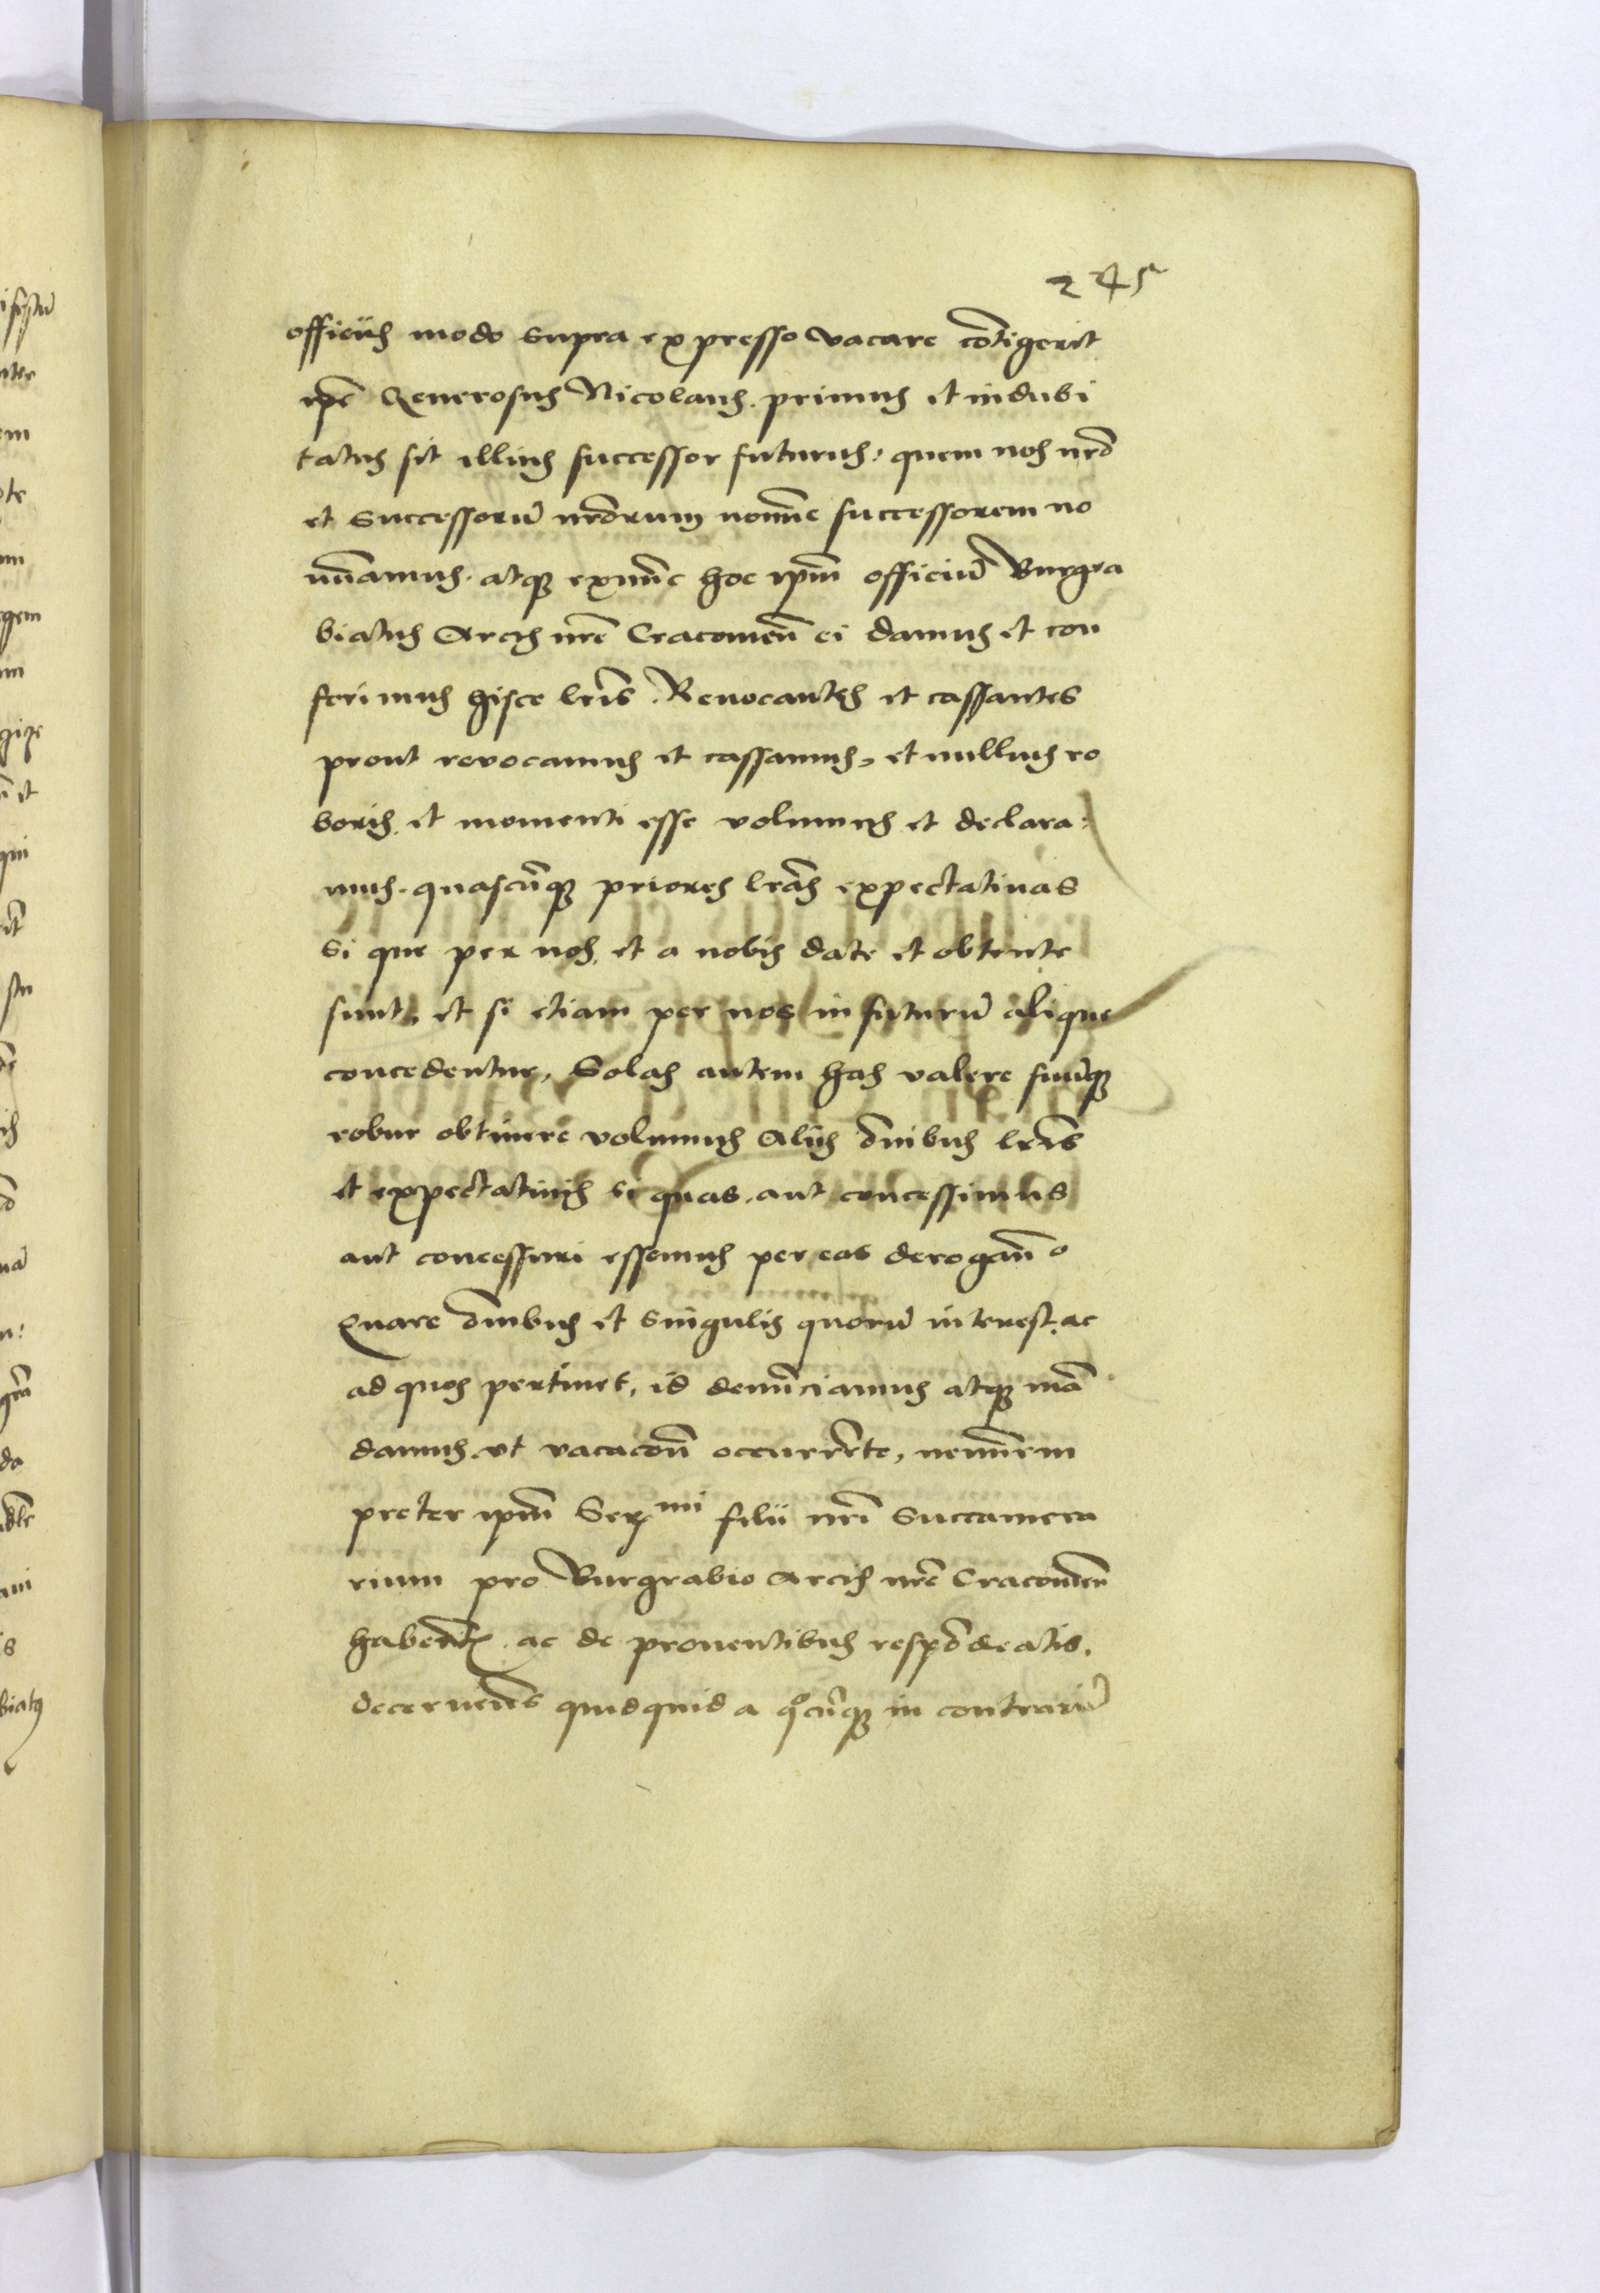 245
officiis modo supra expresso vacare cōtigerit
ip̄e Generosus Nicolaus. primus et indubi
tatus sit illius successor futurus. quem nos nrō
et Successorū nrōrum nomīe successorem no
mīamus. atq3 exnūc hoc ip̄m officiū Burgra
biatus Arcis nrē Cracovieñ ei damus et con
ferimus hisce lrīs. Revocantes et cassantes
prout revocamus et cassamus, et nullius ro
boris et momenti esse volumus et declara:
mus. quascūq3 priores lrās expectativas
si que per nos et a nobis date et obtente
sunt, et si etiam per nos in futurū alique
concedentur, Solas autem has valere suūq3
robur obtinere volumus Aliis ōnibus lrīs
et expectativis si quas aut concessimus
aut concessuri essemus per eas derogañ o
Quare ōnibus et singulis quorū interest. ac
ad quos pertinet, id denūciamus atq3 mā
damus ut vacacōn occurrēte, nemīnem
preter ip̄m Ser mi filii nrī Succamera
rium pro Burgrabio Arcis nrē Cracovieñ
habeatis ac de proventibus respōdeatis.
decernētes quidquid a qōcūq3 in contrariū